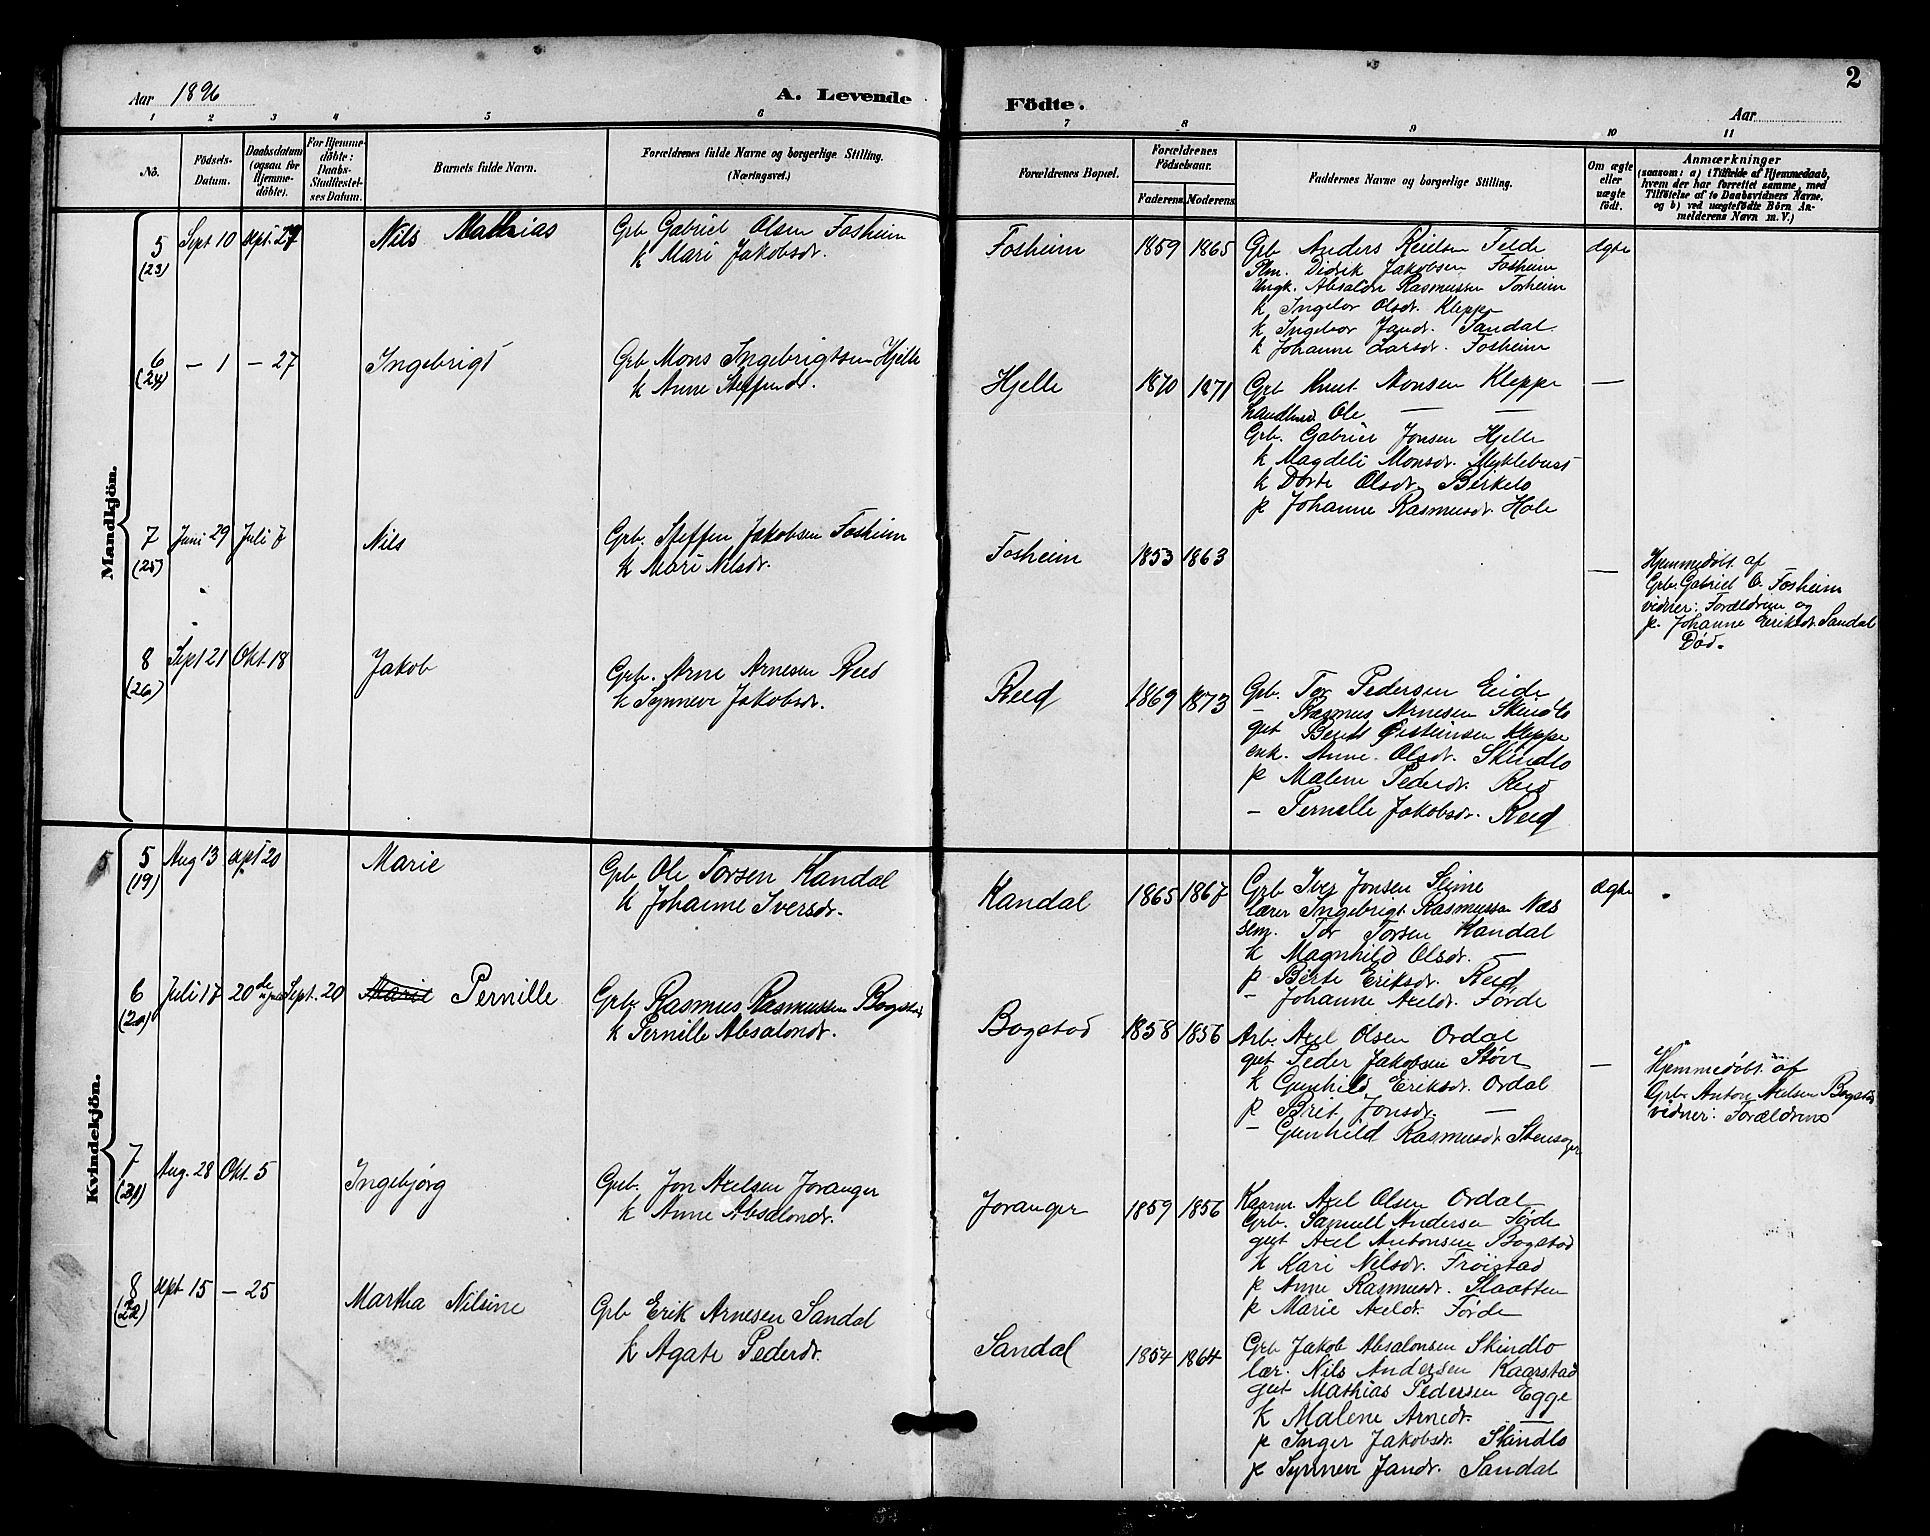 Aar 1896 A. Levende Födte. Aar 2
1 2 3 4 5 6 7 8 9 10 11
No. Födsels-Datum. Daabsdatum (ogsaa for Hjemme-döbte). For Hjemme-döbte: Daabs-Stadfæstel-ses Datum. Barnets fulde Navn. Forældrenes fulde Navne og borgerlige Stilling. (Næringsvei.) Forældrenes Bopæl. Forældrenes Födselsaar. Faderens Moderens Faddernes Navne og borgerlige Stilling. Om ægte eller uægte födt. Anmærkninger
(saasom: a) i Tilfælde af Hjemmedaab,
hvem der har forrettet samme, med
Tilföielse af to Daabsvidners Navne,
og b) ved uægtefödte Börn An-
melderens Navn m. V.)
Mandkjön.
5 (23) Sept 10 Sept. 27 Nils Mathias
Grb Gabriel Olsen Fosheim
k Mari Jakobsdr.
Fosheim 1859 1865
Grb Anders Reielsen Felde ægte
Plm. Didrik Jakobsen Fosheim
Ungk. Absalon Rasmussen Forheim
k Ingebor Olsdr. Kleppe
k Ingebor Jansdr. Sandal
k Johanne Larsdr. Fosheim
6 (24) — 1 — 27 Ingebrigt
Grb Mons Ingebrigtsen Hjelle
k Anne Steffensdr.
Hjelle 1870 1871
Grb Knut Monsen Kleppe —
Landhand. Ole — —
Grb. Gabriel Jonsen Hjelle
k Magdeli Monsdr. Myklebust
k Dorte Olsdr. Birkelo
p Johanne Rasmusdr. Hole
7 (25) Juni 29 Juli 7 Nils
Grb. Steffen Jakobsen Fosheim
k Mari Nilsdr.
Fosheim 1853 1863 —
Hjemmedøbt af
Grb. Gabriel O. Fosheim
vidner: Forældrene og
p. Johanne Eriksdr. Sandal
Død.
8 (26) Sept 21 Okt. 18 Jakob
Grb. Arne Arnesen Reed
k Synneve Jakobsdr.
Reed 1869 1873
Grb. Tor Pedersen Eide
— Rasmus Arnesen Skindlo
gut Bendt Øisteinsen Kleppe
enk. Anne Olsdr. Skindlo
p Malene Pedersdr. Reed
— Pernille Jakobsdr. Reed
Kvindekjön.
5 (19) Aug 13 Sept 20 Marie
Grb Ole Torsen Kandal
k Johanne Iversdr.
Kandal 1865 1867
Grb Iver Jonsen Seime ægte
lærer Ingebrigt Rasmussen Næs
sem. Tor Torsen Kandal
k Magnhild Olsdr. —
p Berte Eriksdr. Reed
— Johanne Axeldr. Førde
6 (20) Juli 17 20de Juli Sept. 20 Marie Pernille
Grb. Rasmus Rasmussen Bogstad
k Pernille Absalonsdr.
Bogstad 1858 1856
Arb. Axel Olsen Ordal
gut Peder Jakobsen Støve —
k Gunhild Eriksdr. Ordal
p Brit Jonsdr. —
— Gunhild Rasmusdr.
Hjemmedøbt af
Grb Anton Axelsen Bogstad
vidner: Forældrene
7 (21) Aug. 28 Okt. 5 Ingebjørg
Grb. Jon Axelsen Joranger
k Anne Absalonsdr.
Joranger 1859 1856
Kaarm Axel Olsen Ordal
Grb. Samuel Andersen Førde
gut Axel Antonsen Bogstad
k Kari Nilsdr. Frøistad
p Anne Rasmusdr. Slaatten
p Marie Axeldr. Førde
8 (22) Sept 15 — 25 Martha Nilsine
Grb Erik Arnesen Sandal
k Agate Pedersdr.
Sandal 1854 1864
Grb Jakob Absalonsen Skindlo
lær. Nils Andersen Kaarstad
gut Mathias Pedersen Egge
k Malene Arnedr. —
p Inger Jakobsdr. Skindlo
p Synneve Jansdr. Sandal